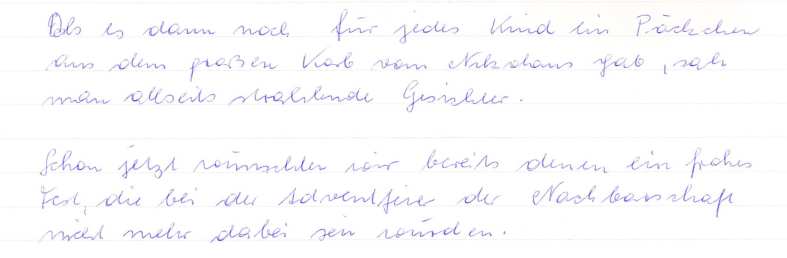 Als es dann noch für jedes Kind ein Päckchen
aus dem großen Korb vom Nikolaus gab, sah
man allseits strahlende Gesichter.
Schon jetzt wünschten wir bereits denen ein frohes
Fest, die bei der Adventfeier der Nachbarschaft
nicht mehr dabei sein würden.